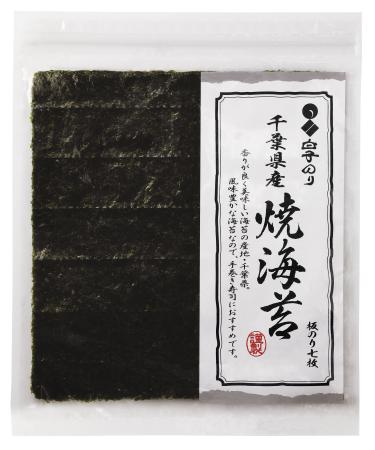 白子のり
千葉県産
焼海苔
香りが良く美味しい海苔の産地・千葉県。
風味豊かな海苔なので、手巻き寿司におすすめです。
謹製
板のり七枚